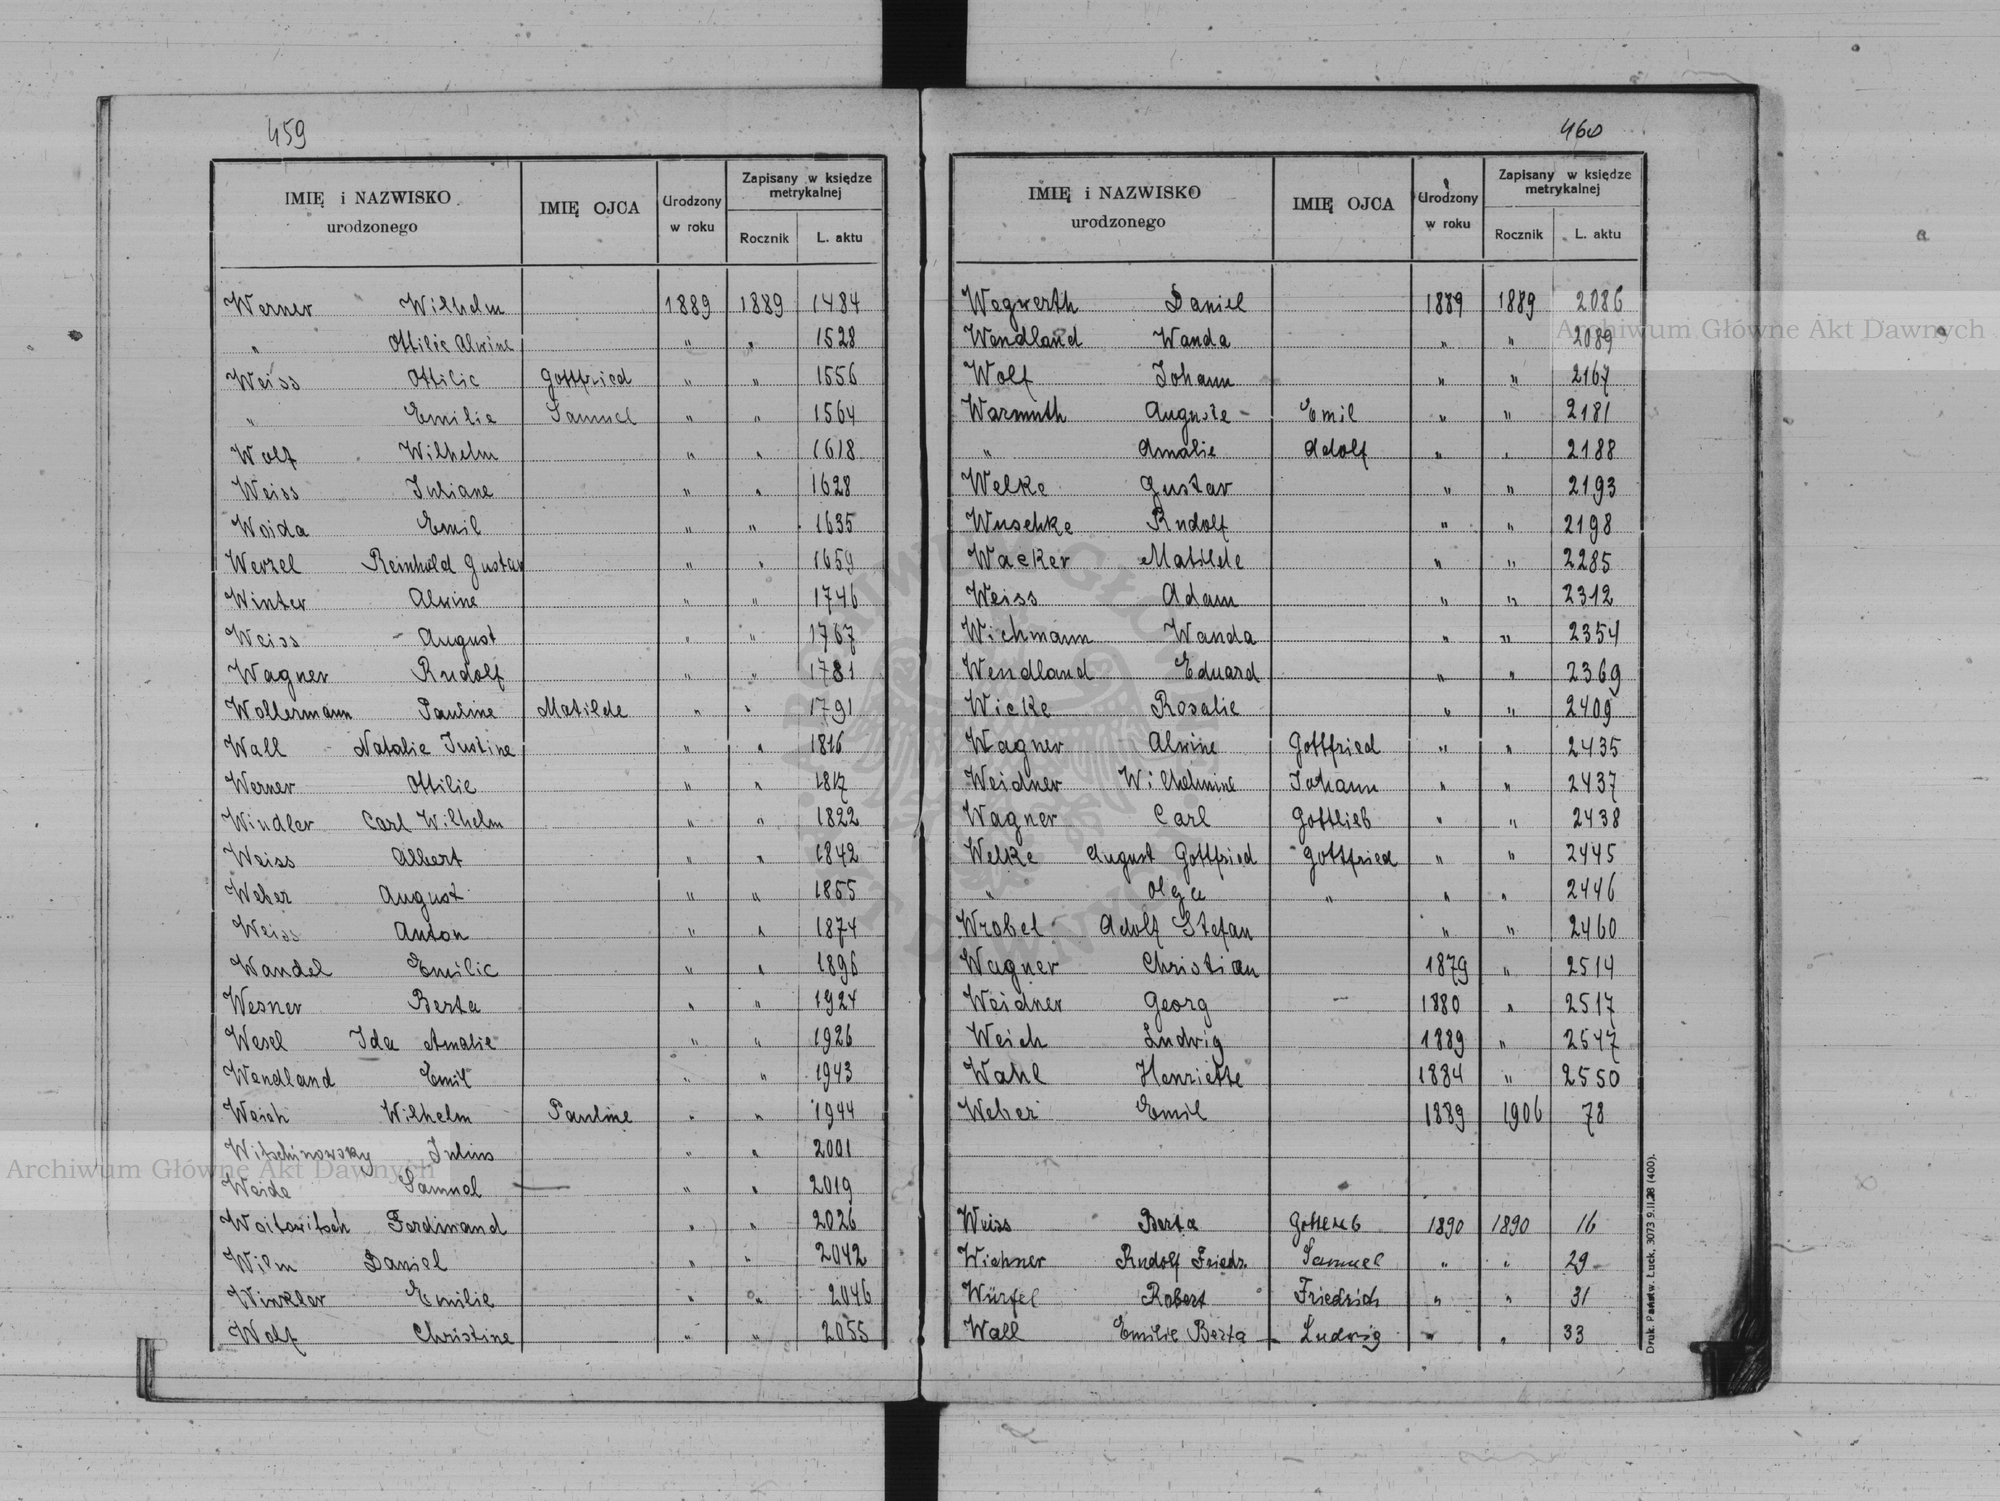 459
IMIĘ i NAZWISKO urodzonego IMIĘ OJCA Urodzony w roku Zapisany w księdze metrykalnej Rocznik L. aktu
Werner Wilhelm 1889 1889 1484
" Ottilie Alwine " " 1528
Weiss Ottilie Gottfried " " 1556
" Emilie Samuel " " 1564
Wolf Wilhelm " " 1618
Weiss Juliane " " 1628
Woida Emil " " 1635
Werzel Reinhold Gustav " " 1659
Winter Alwine " " 1746
Weiss August " " 1767
Wagner Rudolf " " 1781
Wollermann Pauline Matilde " " 1791
Wall Natalie Justine " " 1816
Werner Ottilie " " 1817
Windler Carl Wilhelm " " 1822
Weiss Albert " " 1842
Weber August " " 1855
Weiss Anton " " 1874
Wandel Emilie " " 1896
Wesner Berta " " 1924
Wesel Ida Amalie " " 1926
Wendland Emil " " 1943
Weich Wilhelm Pauline " " 1944
Witschinowsky Julius " " 2001
Weide Samuel " " 2019
Woitowitsch Ferdinand " " 2026
Wilm Daniel " " 2042
Winkler Emilie " " 2046
Wolf Christine " " 2055
460
IMIĘ i NAZWISKO urodzonego IMIĘ OJCA Urodzony w roku Zapisany w księdze metrykalnej Rocznik L. aktu
Wegwerth Daniel 1889 1889 2086
Wendland Wanda " " 2089
Wolf Johann " " 2167
Warmuth Auguste - Emil " " 2181
" Amalie Adolf " " 2188
Welke Gustav " " 2193
Wuschke Rudolf " " 2198
Wacker Matilde " " 2285
Weiss Adam " " 2312
Wichmann Wanda " " 2354
Wendland Eduard " " 2369
Wicke Rosalie " " 2409
Wagner Alwine Gottfried " " 2435
Weidner Wilhelmine Johann " " 2437
Wagner Carl Gottlieb " " 2438
Welke August Gottfried Gottfried " " 2445
" Olga " " " 2446
Wrobel Adolf Stefan " " 2460
Wagner Christian 1879 " 2514
Weidner Georg - 1880 " 2517
Weich Ludwig 1889 " 2547
Wahl Henriette 1884 " 2550
Weber Emil 1889 1906 78
Weiss Berta Gottlieb 1890 1890 16
Wichner Rudolf Friedr. Samuel " " 29
Würfel Robert Friedrich " " 31
Wall Emilie Berta Ludwig " " 33
Druk. Państw. Łuck. 3073 9.II.28 (400).
Archiwum Główne Akt Dawnych
Archiwum Główne Akt Dawnych
ARCHIWUM GŁÓWNE AKT DAWNYCH